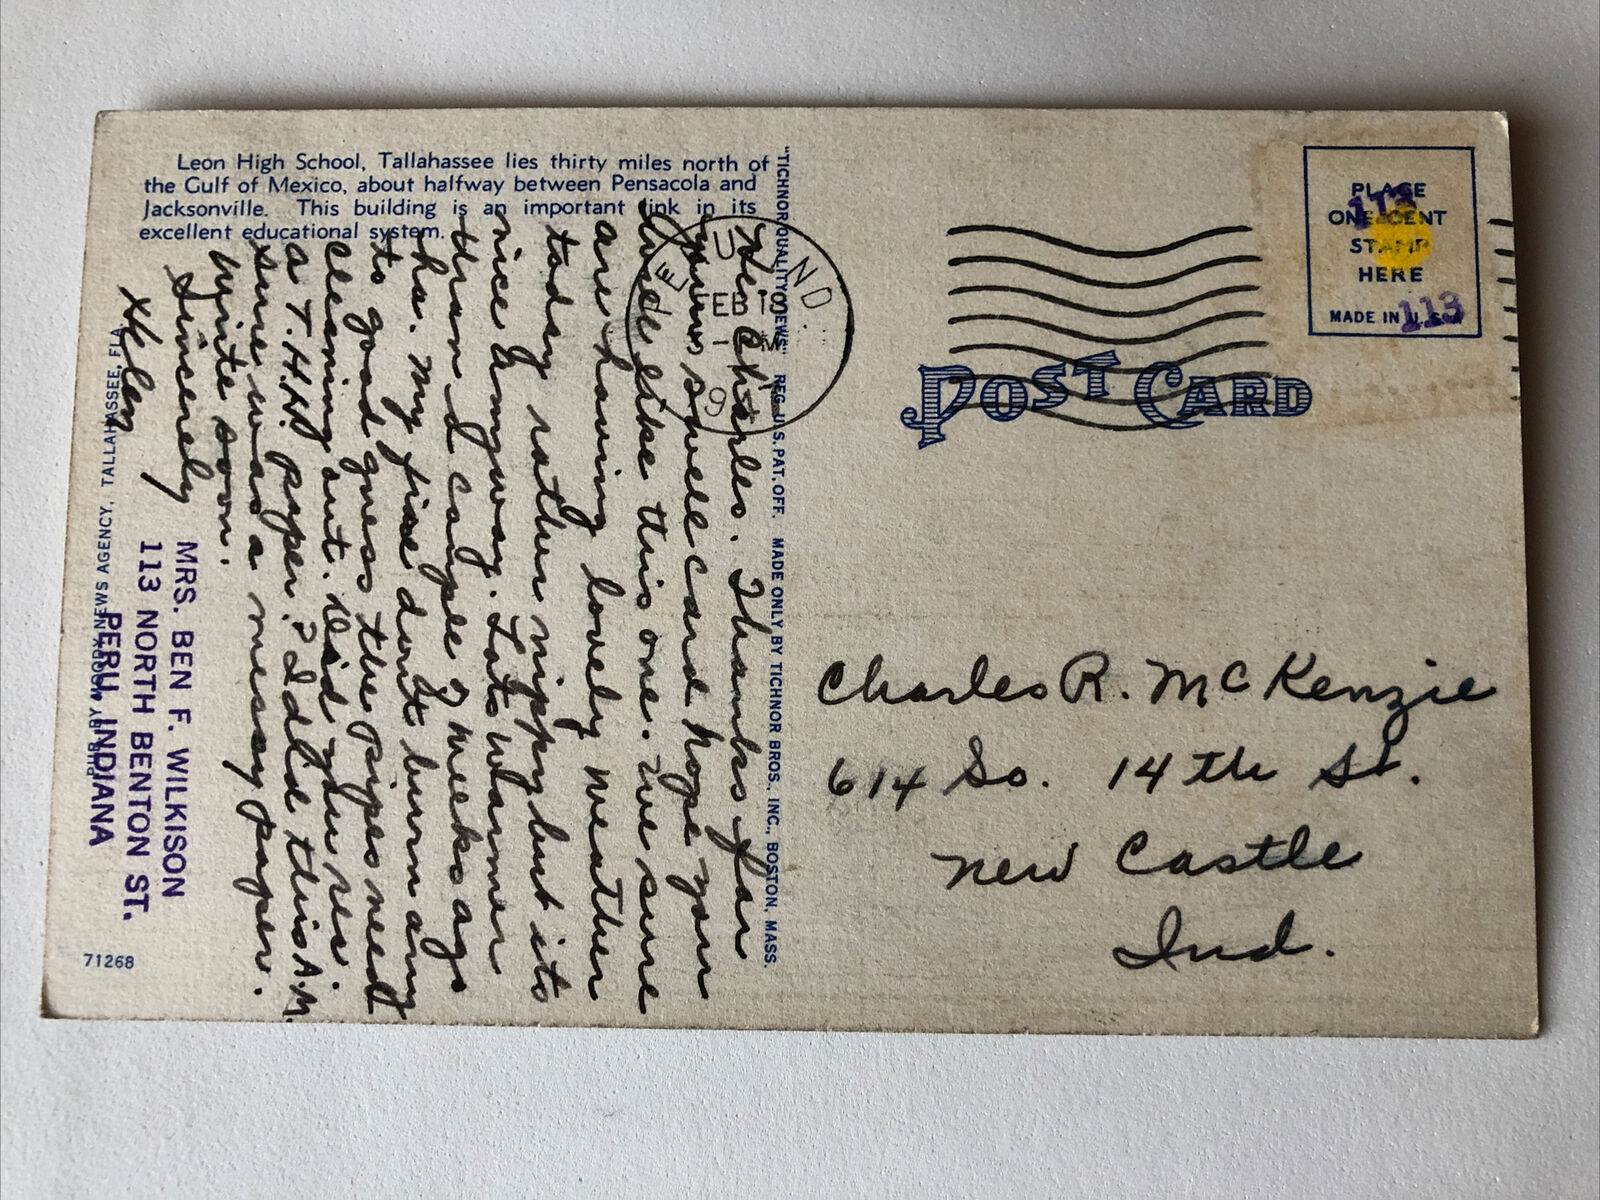 Leon High School, Tallahassee lies thirty miles north of
the Gulf of Mexico, about halfway between Pensacola and
Jacksonville. This building is an important link in its
excellent educational system.
"TICHNOR QUALITY VIEWS" REG. U.S. PAT. OFF. MADE ONLY BY TICHNOR BROS., INC., BOSTON, MASS.
PUB. BY NEWS AGENCY, TALLAHASSEE, FLA.
71268
PERU, IND.
FEB 18
PM
Hey Charles. Thanks for
your swell card hope you
like this one. We sure
are having lovely weather
today rather nippy but its
nice anyway. Lots warmer
than I count 2 weeks ago
ha. My fire dont burn any
to good guess the pipes need
cleaning out. Did you rec.
a T.H.H. paper? I did this A.M.
sure was a messy paper.
Write soon.
Sincerely
Helen
MRS. BEN F. WILKISON
113 NORTH BENTON ST.
PERU, INDIANA
PLACE
ONE CENT
STAMP
HERE
MADE IN U.S.A.
113
113
POST CARD
Charles R. McKenzie
614 So. 14th St.
New Castle
Ind.